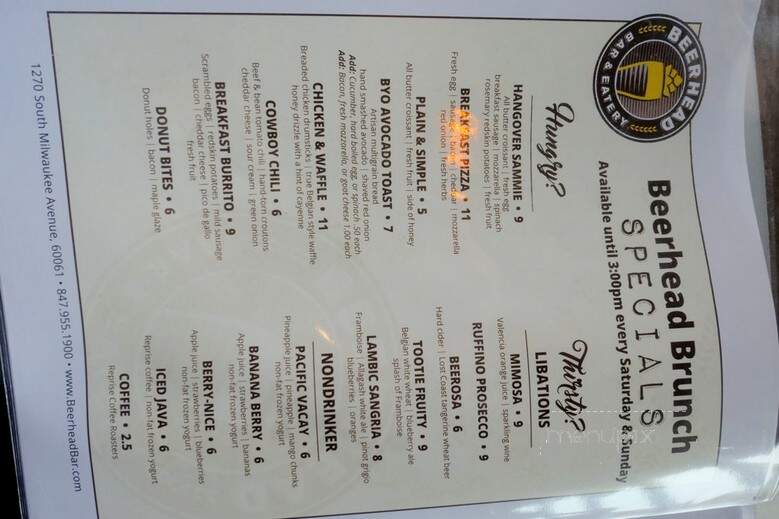 BEERHEAD
BAR & EATERY
Beerhead Brunch
SPECIALS
Available until 3:00pm every Saturday & Sunday
Hungry?
HANGOVER SAMMIE • 9
All butter croissant | fresh egg
breakfast sausage | mozzarella | spinach
rosemary redskin potatoes | fresh fruit
BREAKFAST PIZZA • 11
Fresh egg | sausage | bacon | cheddar | mozzarella
red onion | fresh herbs
PLAIN & SIMPLE • 5
All butter croissant | fresh fruit | side of honey
BYO AVOCADO TOAST • 7
Artisan multigrain bread
hand smashed avocado | shaved red onion
Add: Cucumber, hard boiled egg, or spinach .50 each
Add: Bacon, fresh mozzarella, or goat cheese 1.00 each
CHICKEN & WAFFLE • 11
Breaded chicken drumsticks | true Belgian style waffle
honey drizzle with a hint of cayenne
COWBOY CHILI • 6
Beef & bean tomato chili | hand-torn croutons
cheddar cheese | sour cream | green onion
BREAKFAST BURRITO • 9
Scrambled eggs | redskin potatoes | mild sausage
bacon | cheddar cheese | pico de gallo
fresh fruit
DONUT BITES • 6
Donut holes | bacon | maple glaze
Thirsty?
LIBATIONS
MIMOSA • 9
Valencia orange juice | sparkling wine
RUFFINO PROSECCO • 9
BEEROSA • 6
Hard cider | Lost Coast tangerine wheat beer
TOOTIE FRUITY • 9
Belgian white wheat | blueberry ale
splash of Framboise
LAMBIC SANGRIA • 8
Framboise | Allagash white ale | pinot grigio
blueberries | oranges
NONDRINKER
PACIFIC VACAY • 6
Pineapple juice | pineapple | mango chunks
non-fat frozen yogurt
BANANA BERRY • 6
Apple juice | strawberries | bananas
non-fat frozen yogurt
BERRY-NICE • 6
Apple juice | strawberries | blueberries
non-fat frozen yogurt
ICED JAVA • 6
Reprise coffee | non-fat frozen yogurt
COFFEE • 2.5
Reprise Coffee Roasters
1270 South Milwaukee Avenue, 60061 • 847.955.1900 • www.BeerheadBar.com
menupix